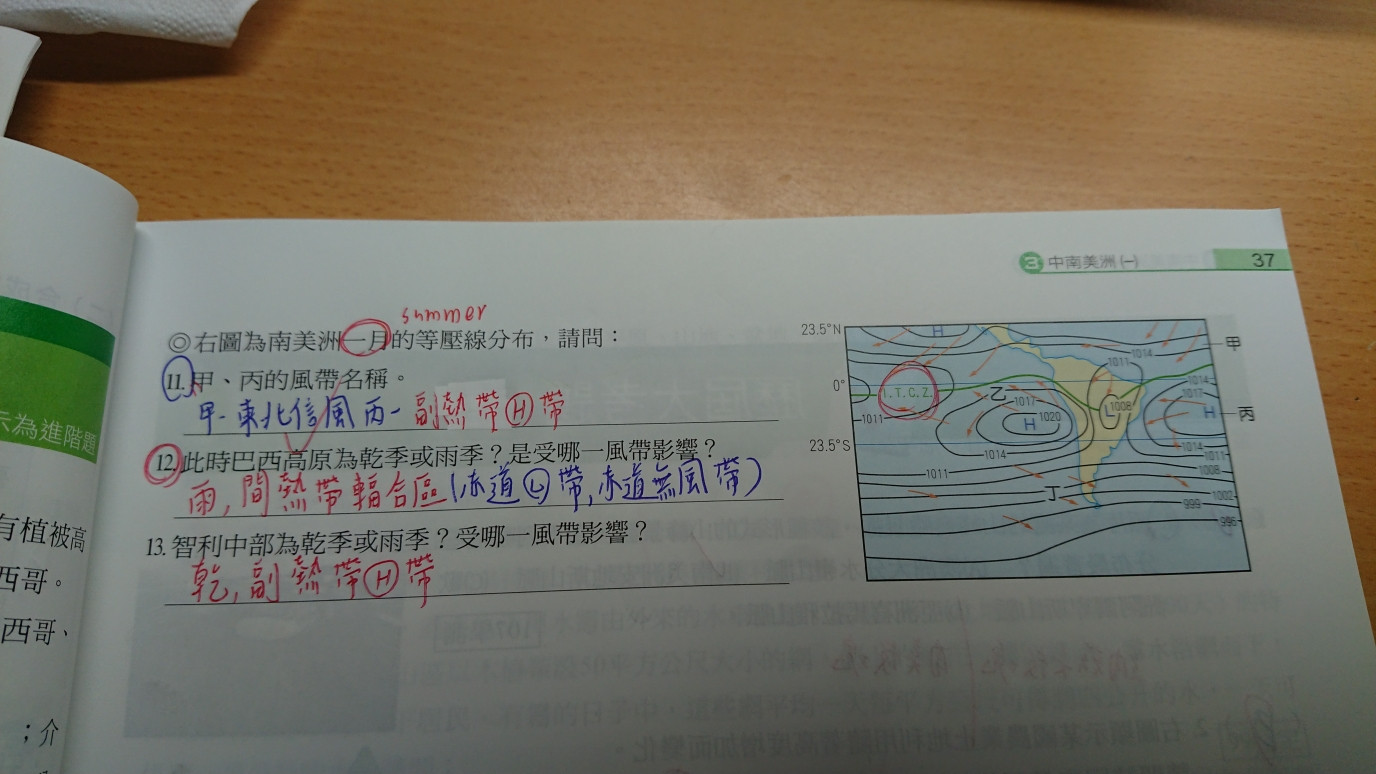 3 中南美洲(一) 37
summer
◎右圖為南美洲一月的等壓線分布，請問：
11.甲、丙的風帶名稱。
甲-東北信風 丙-副熱帶Ⓗ帶
12.此時巴西高原為乾季或雨季？是受哪一風帶影響？
雨,間熱帶輻合區(赤道Ⓛ帶,赤道無風帶)
13.智利中部為乾季或雨季？受哪一風帶影響？
乾,副熱帶Ⓗ帶
23.5°N
H
甲
1014
1011
0°
I.T.C.Z.
乙
1014
1017
1017
L
1008
H
丙
1011
H
1020
23.5°S
1014
1014
1011
1011
1008
丁
1002
999
996
示為進階題
有植被高
西哥。
西哥、
；介